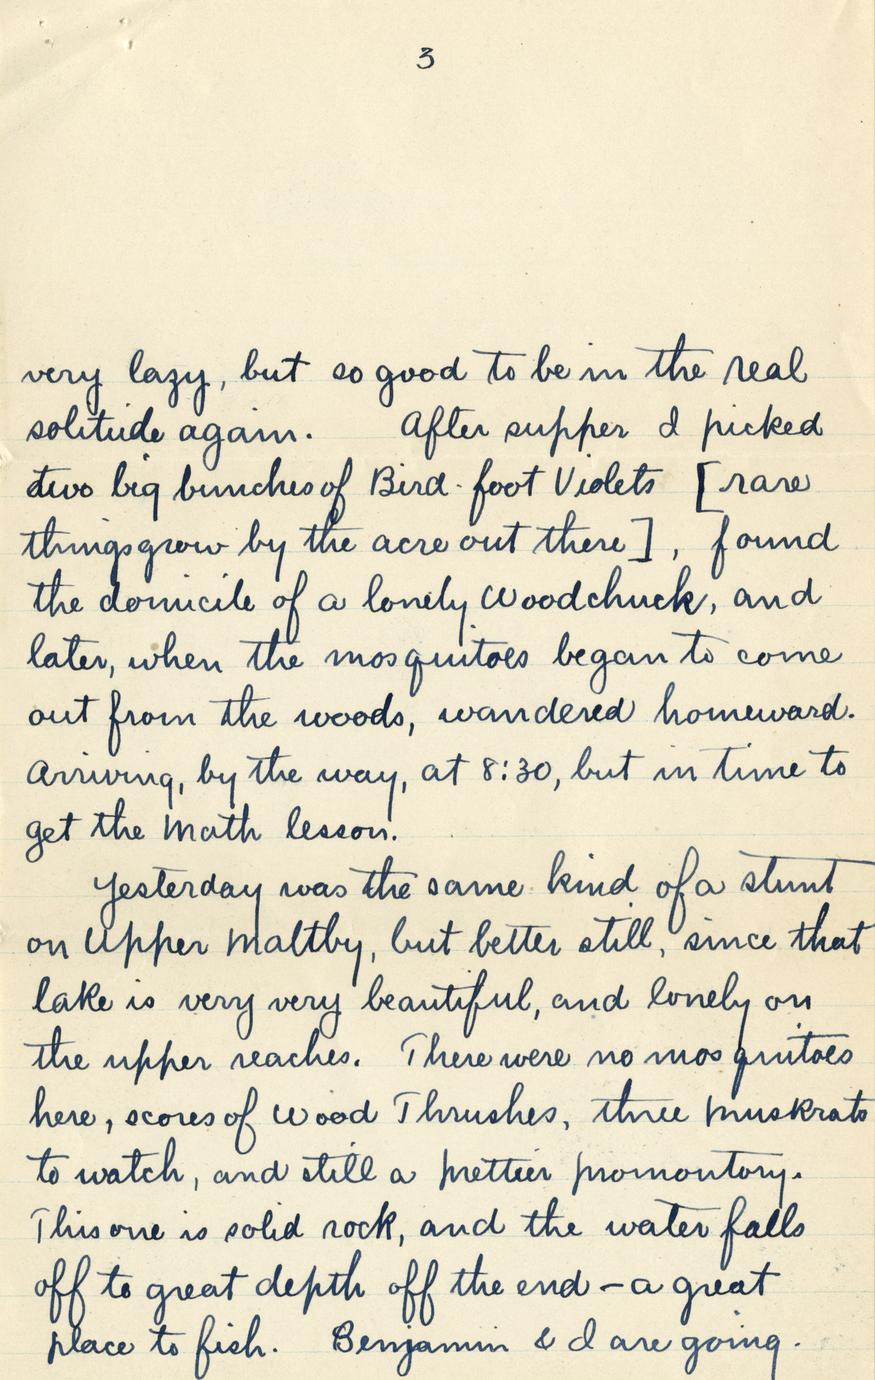 3
very lazy, but so good to be in the real
solitude again. After supper I picked
two big bunches of Bird-foot Violets [rare
things grow by the acre out there], found
the domicile of a lonely Woodchuck, and
later, when the mosquitoes began to come
out from the woods, wandered homeward.
Arriving, by the way, at 8:30, but in time to
get the Math lesson.
Yesterday was the same kind of a stunt
on Upper Maltby, but better still, since that
lake is very very beautiful, and lonely on
the upper reaches. There were no mosquitoes
here, scores of Wood Thrushes, three Muskrats
to watch, and still a prettier promontory.
This one is solid rock, and the water falls
off to great depth off the end – a great
place to fish. Benjamin & I are going.